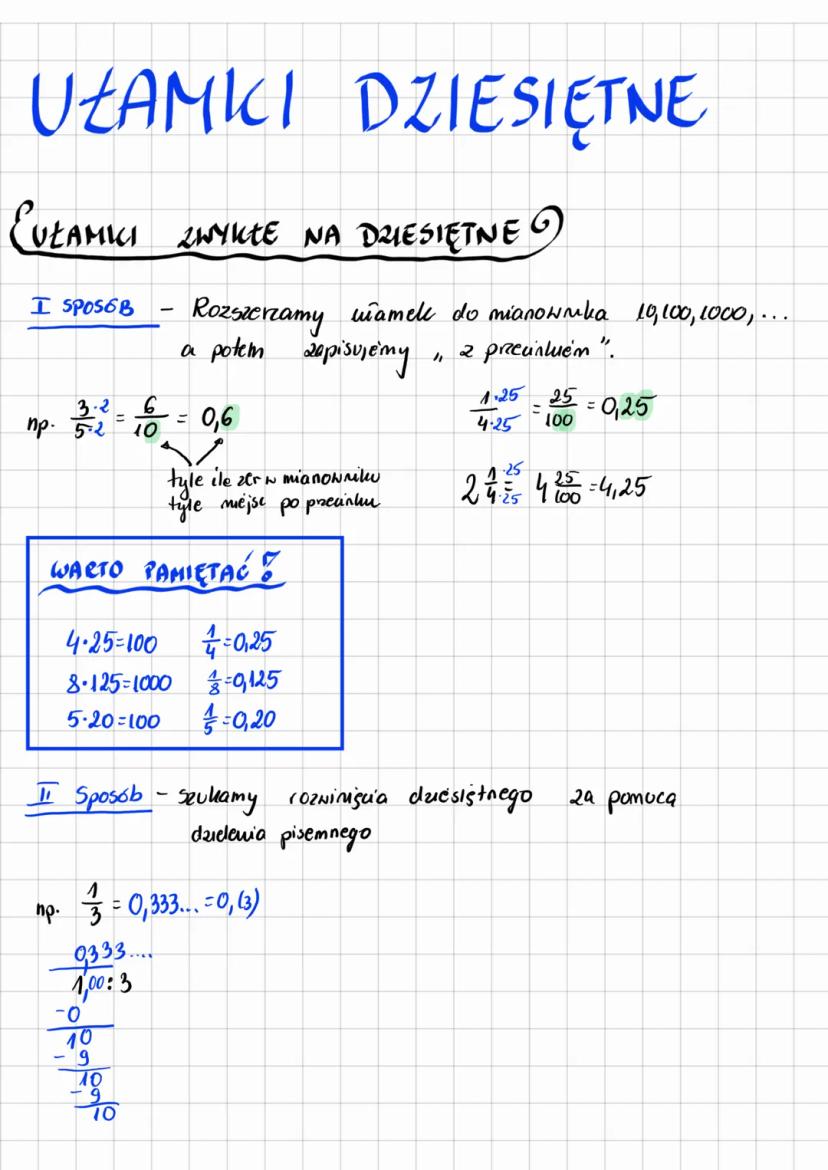 UŁAMKI DZIESIĘTNE
UŁAMKI ZWYKŁE NA DZIESIĘTNE
I SPOSÓB - Rozszerzamy ułamek do mianownika 10, 100, 1000, ...
a potem zapisujemy „ z przecinkiem ".
np. 3·2/5·2 = 6/10 = 0,6
1·25/4·25 = 25/100 = 0,25
tyle ile zer w mianowniku
tyle miejsc po przecinku
2 1·25/4·25 = 4 25/100 = 4,25
WARTO PAMIĘTAĆ !
4·25=100 1/4=0,25
8·125=1000 1/8=0,125
5·20=100 1/5=0,20
II Sposób - szukamy rozwinięcia dziesiętnego za pomocą
dzielenia pisemnego
np. 1/3 = 0,333... = 0,(3)
0,333....
1,00:3
-0
10
- 9
10
- 9
10